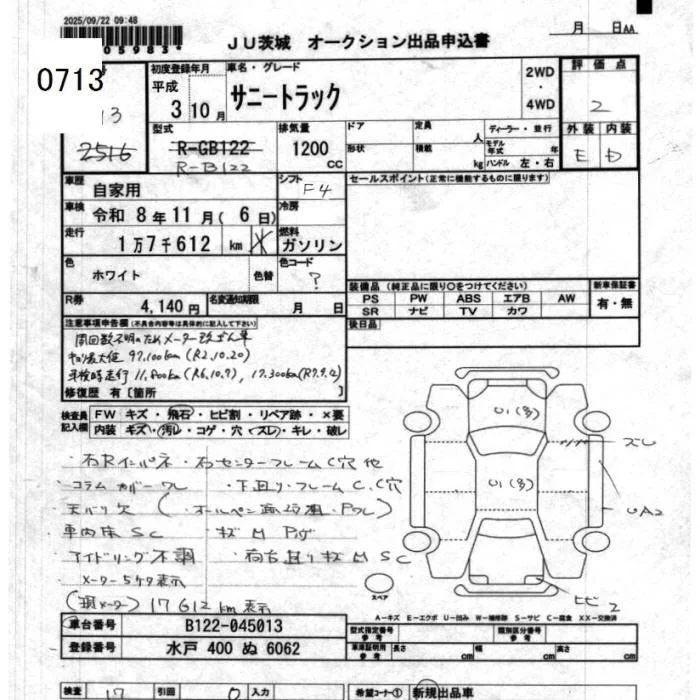 2025/09/22 09:48
05983*
JU茨城 オークション出品申込書
月 日
0713
初度登録年月
平成
3 10月
車名・グレード
サニートラック
2WD
・
4WD
評価点
2
外装 内装
E D
2516
型式
R-GB122
R-B122
排気量
1200
cc
ドア
形状
定員
人
積載
kg
ディーラー・並行
モデル
年式 年
ハンドル 左・右
車歴
自家用
シフト
F4
セールスポイント(正常に機能するものに限ります)
車検
令和 8年 11月 ( 6日)
冷房
走行
1万7千612 km
燃料
ガソリン
色
ホワイト
色替
色コード
?
装備品 (純正品に限り○をつけてください)
新車保証書
PS PW ABS エアB AW
有・無
SR ナビ TV カワ
R券
4,140円
名変通知期限
月 日
後日品
注意事項申告欄(不具合内容等は具体的に記入して下さい)
97,100km (R2.10.20)
車検時走行 11,800km(R6.10.9), 17,300km(R7.9.4)
修復歴 有[箇所 ]
検査員
記入欄
FW キズ・飛石・ヒビ割・リペア跡・×要
内装 キズ・汚レ・コゲ・穴・スレ・キレ・破レ
・右Rインパネ・右センターフレームC穴他
・コラムカバーワレ ・下廻り・フレームC.C穴
天バリ欠
車内床SC
アイドリング不調
・メーター5ケタ表示
(現メーター) 17612km表示
U1(多)
U1(多)
スレ
UA2
ヒビ2
スペア
A-キズ E-エクボ U-凹み W-補修跡 S-サビ C-腐食 XX-交換済
車台番号
B122-045013
登録番号
水戸 400 ぬ 6062
型式指定番号
参考
類別区分番号
参考
車庫証明用
参考
長さ cm
幅 cm
高さ cm
検査 17
引回 0
入力
希望コーナー① 新規出品車